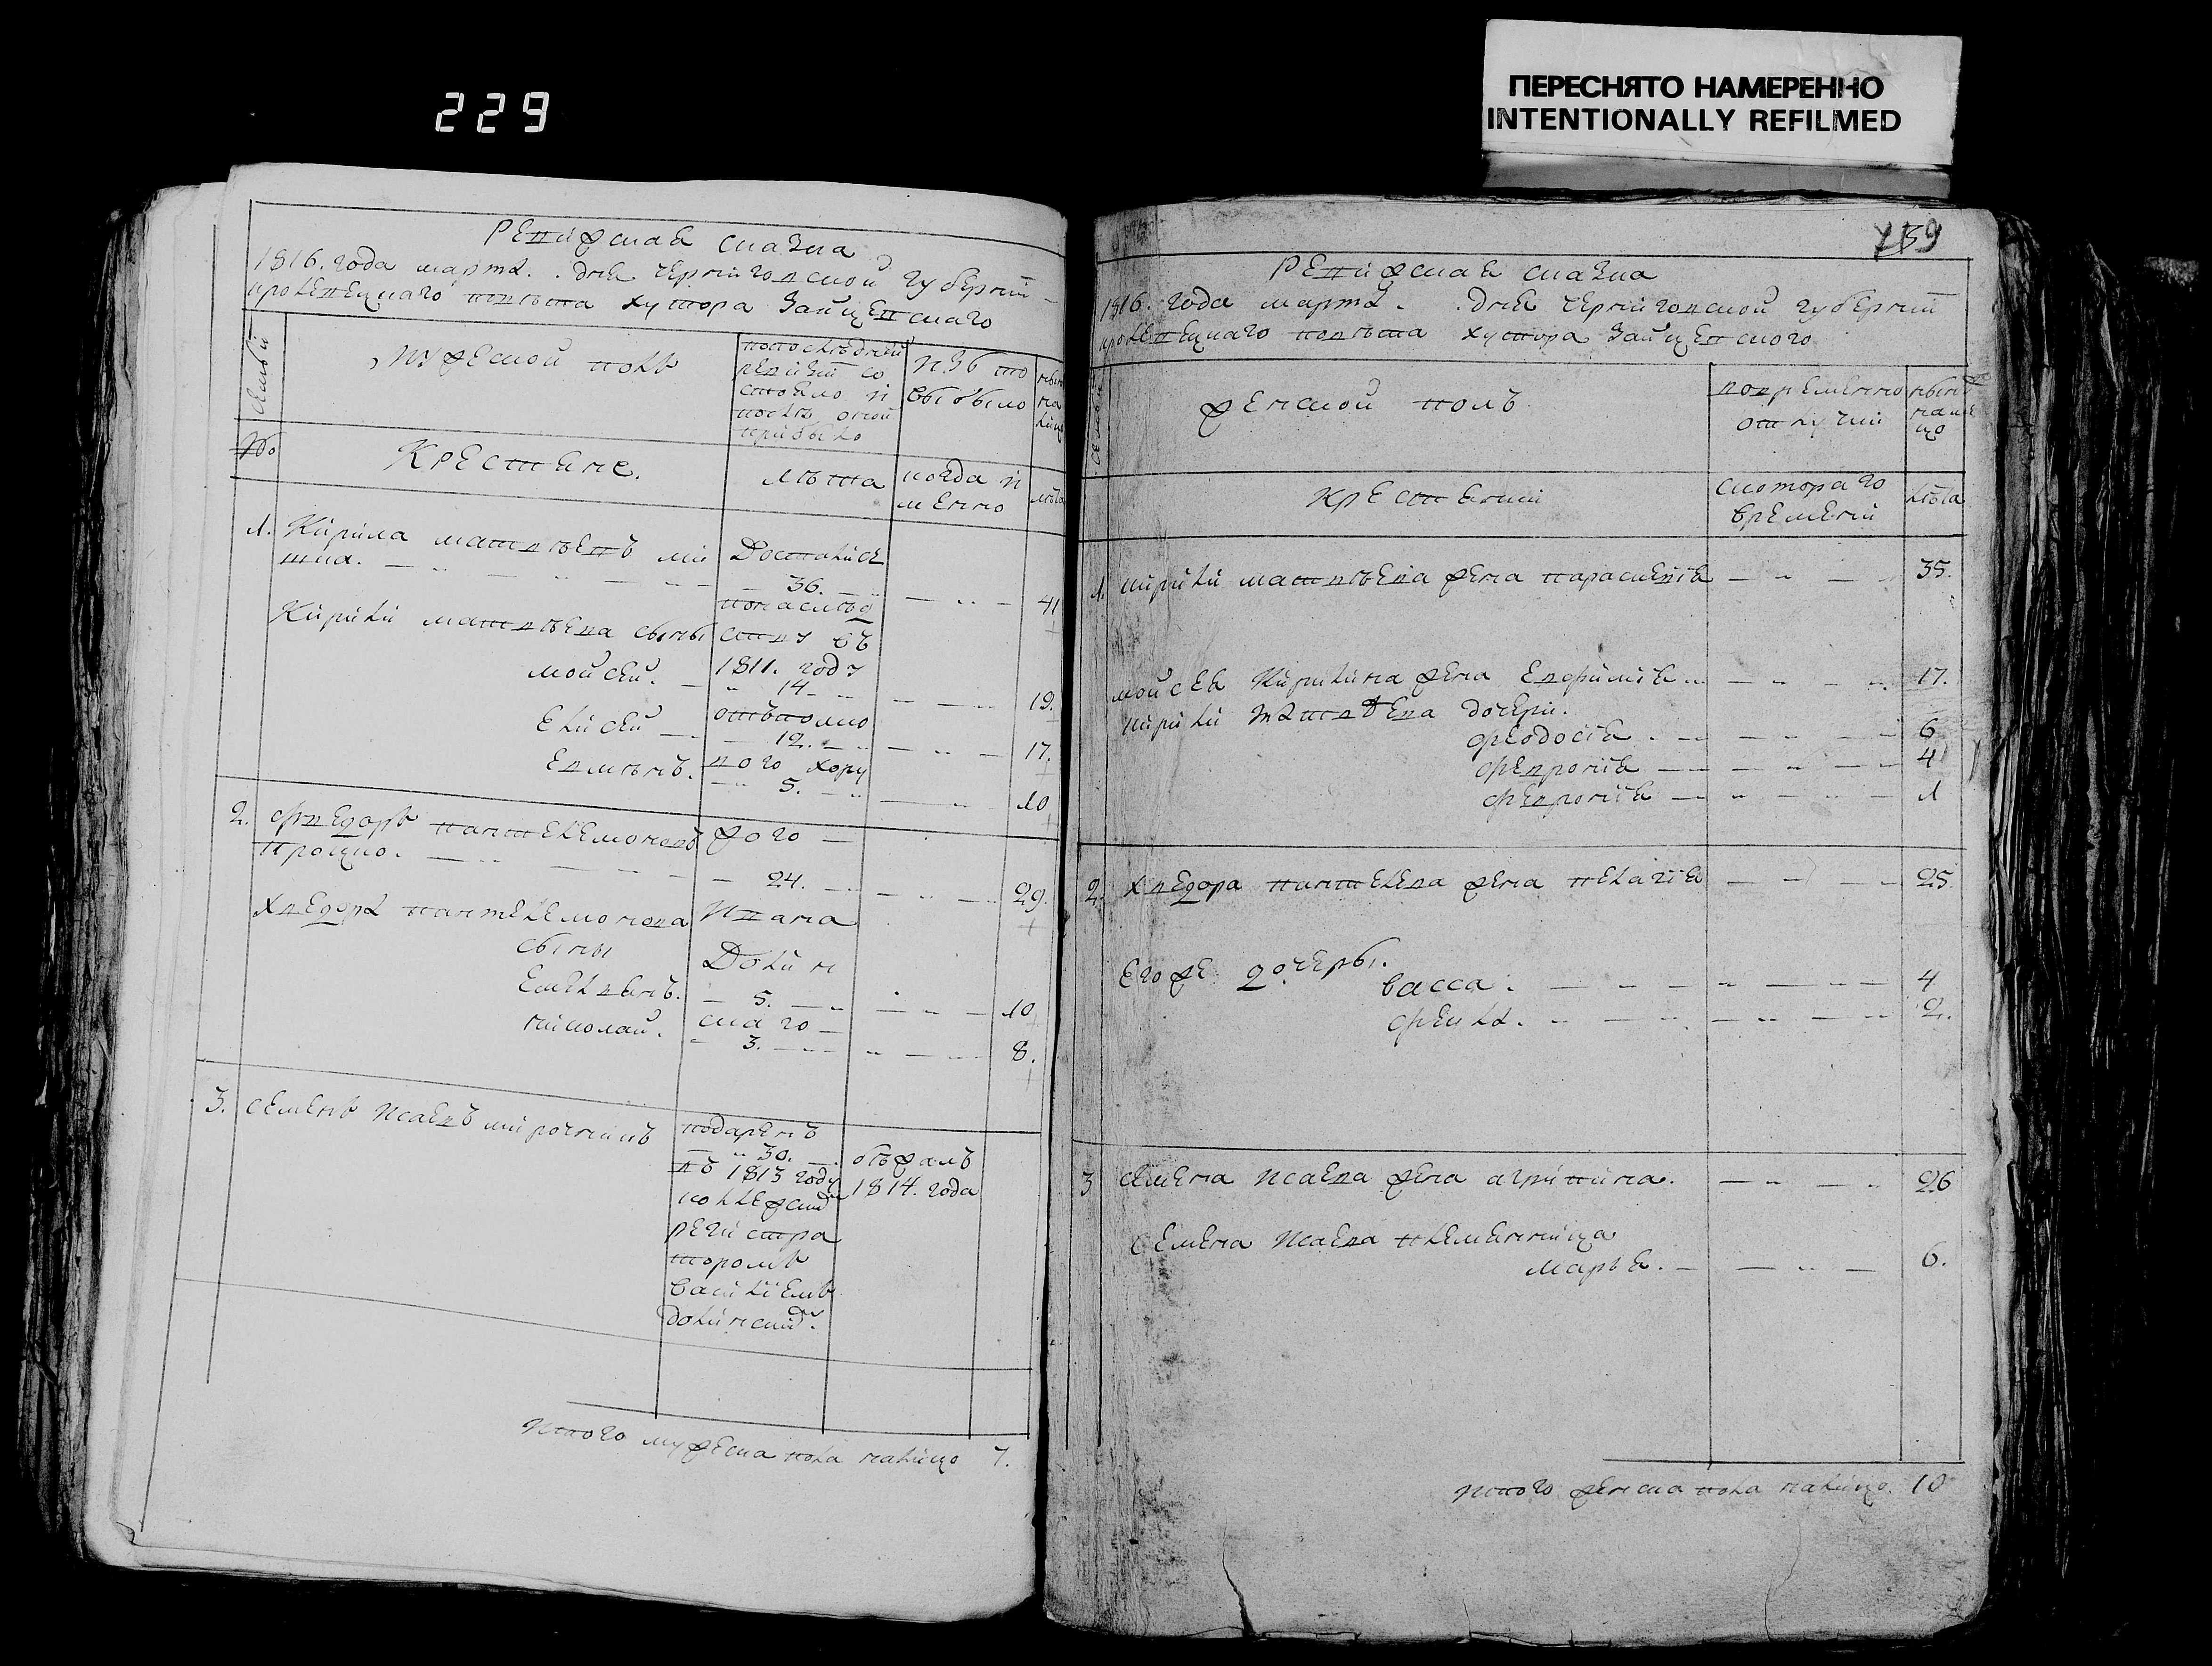 229
ПЕРЕСНЯТО НАМЕРЕННО
INTENTIONALLY REFILMED
Ревижская сказка
1816. года марта. дня черниговской губернии
кролевецкаго повѣта хутора Зайцевскаго
Семьи
Мужеской полъ
попоследней
ревизии со
стояло и
после оной
прибыло
Изъ то
выбыло
№
Крестяне.
лѣта
когда и
менно
лѣта
1. Кирила матвѣевъ
Досталися
36.
41
понаслѣд
Кирили матвѣева сыны
ству въ
мойсей.
1811. году
14
19.
Елисей
отъполко
12.
17.
Евмѣнъ.
вого хору
5.
10
2. Фведоръ пантелемоновъ
жого
Процко.
24.
29.
Хведора пантелемонова
Ивана
сыны
Долин
Емельянъ.
5.
10
николай.
скаго
3.
8.
3. Семенъ Исаевъ мирочникъ
подаренъ
30.
въ 1813 году
колежским
регистра
торомъ
Василиемъ
долинским.
бѣжалъ
1814. года
Итого мужеска пола налицо 7.
159
Ревижская сказка
1816. года марта. дня черниговской губернии
кролевецкаго повѣта хутора Зайцевского
женской полъ
вовременно
отлучки
нынѣ
нали
цо
крестянки
скотораго
времени
лѣта
1. кирили матвѣева жена параскевія
35.
мойсея Кирилина жена Евфимія
17.
кирили матвѣева дочери.
феодосія
6
февронія
4
февронія
1
2. Хведора пантелева жена пелагія
25.
Егоже дочеры.
васса.
4
фекла.
2.
3 семена Исаева жена агрипина.
26
Семена Исаева племенница
марья.
6.
Итого женска пола налицо. 10